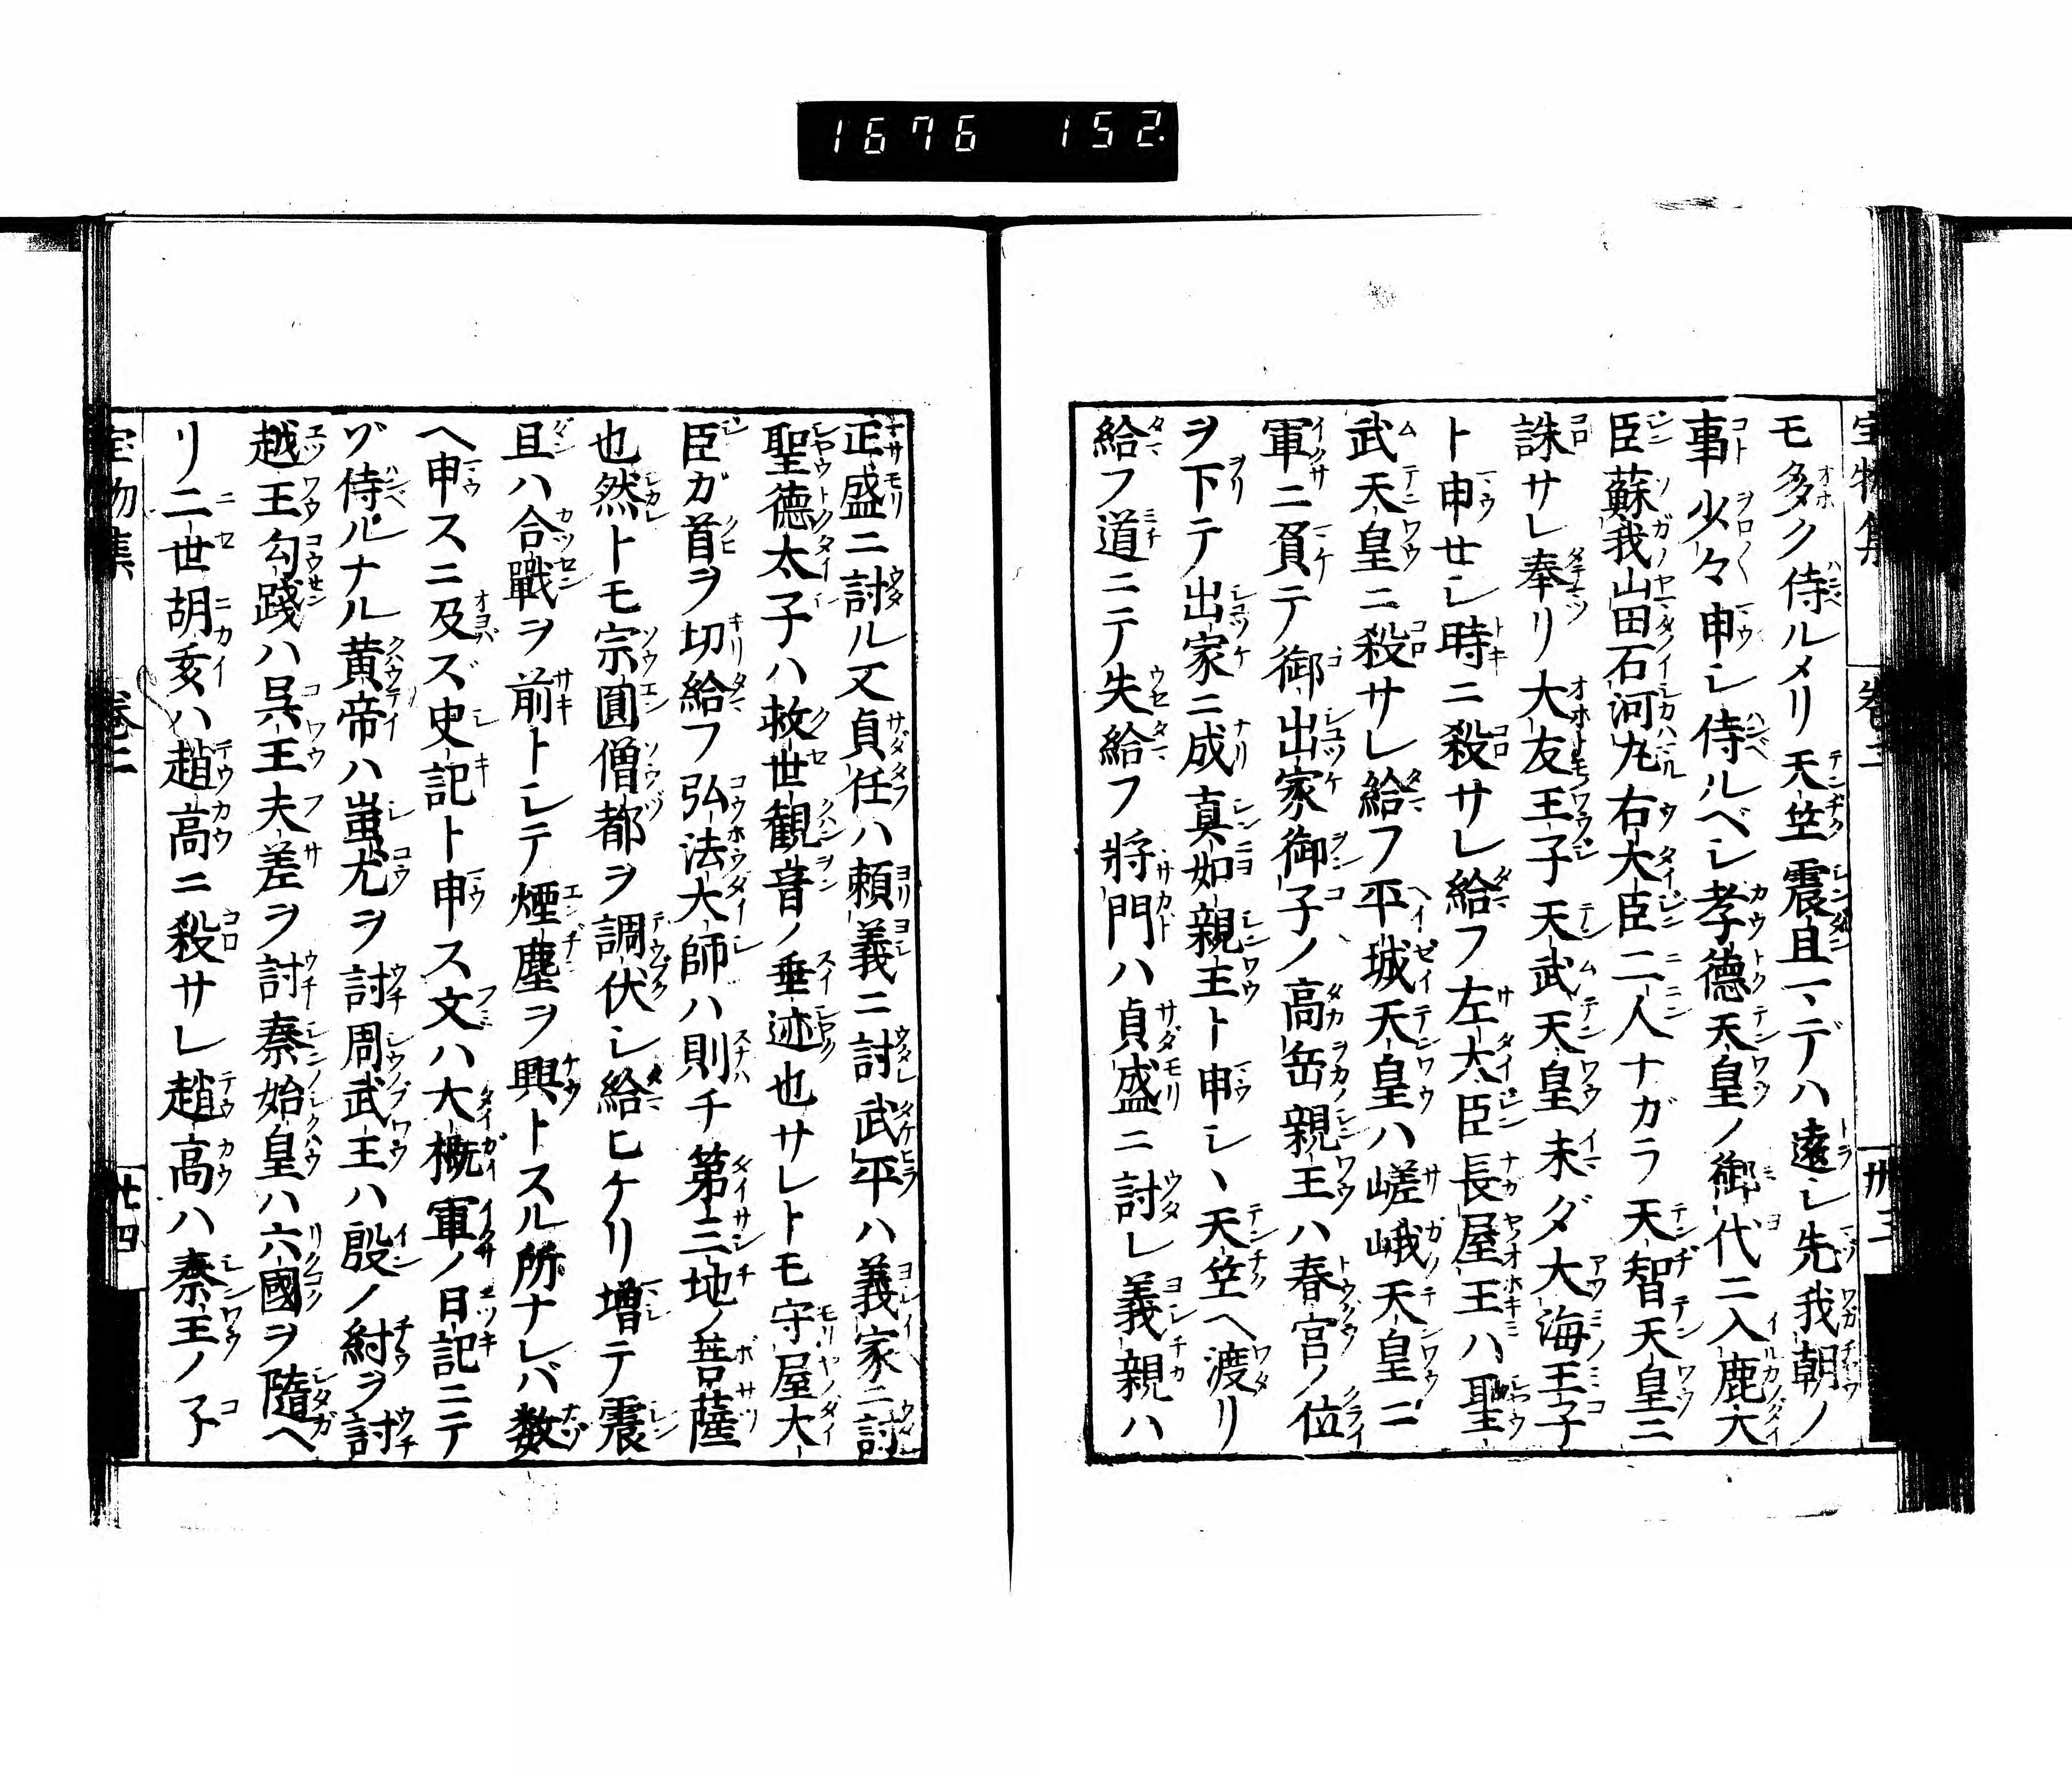 1676 152
モ多ク侍ルメリ天竺震旦マデハ遠シ先我朝ノ
事少々申シ侍ルベシ孝德天皇ノ御代ニ入鹿大
臣蘇我山田石河丸右大臣二人ナガラ天智天皇ニ
誅サレ奉リ大友王子天武天皇未ダ大海王子
ト申セシ時ニ殺サレ給フ左大臣長屋王ハ聖
武天皇ニ殺サレ給フ平城天皇ハ嵯峨天皇ニ
軍ニ負テ御出家御子ノ高岳親王ハ春宮ノ位
ヲ下テ出家ニ成真如親王ト申シ、天竺ヘ渡リ
給フ道ニテ失給フ將門ハ貞盛ニ討レ義親ハ
正盛ニ討ル又貞任ハ頼義ニ討武平ハ義家ニ討
聖德太子ハ救世観音ノ垂迹也サレトモ守屋大
臣ガ首ヲ切給フ弘法大師ハ則チ第三地ノ菩薩
也然トモ宗圓僧都ヲ調伏シ給ヒケリ増テ震
旦ハ合戰ヲ前トシテ煙塵ヲ興トスル所ナレバ数
ヘ申スニ及ズ史記ト申ス文ハ大概軍ノ日記ニテ
ゾ侍ルナル黄帝ハ蚩尤ヲ討周武王ハ殷ノ紂ヲ討
越王勾踐ハ呉王夫差ヲ討秦始皇ハ六國ヲ隨ヘ
リ二世胡亥ハ趙高ニ殺サレ趙高ハ秦王ノ子
宝物集 巻二 廿四